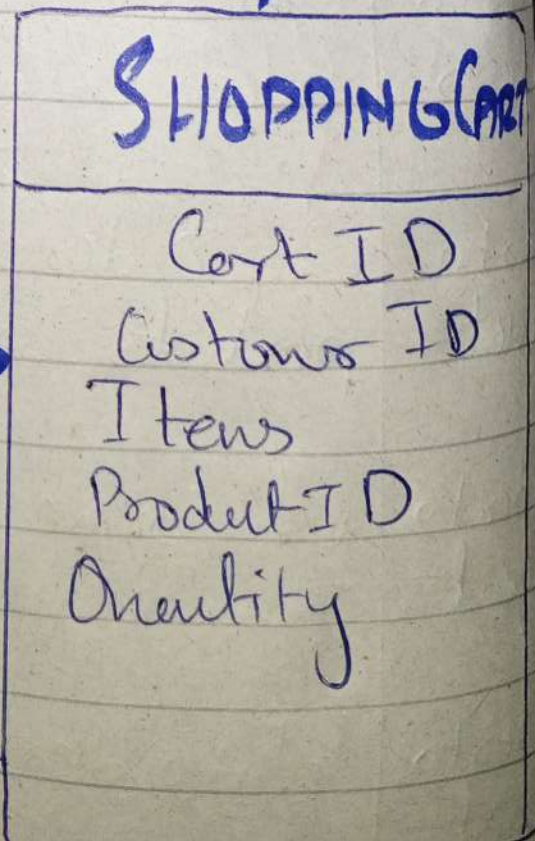 SHOPPING CART
Cart ID
Customer ID
Items
Product ID
Quantity